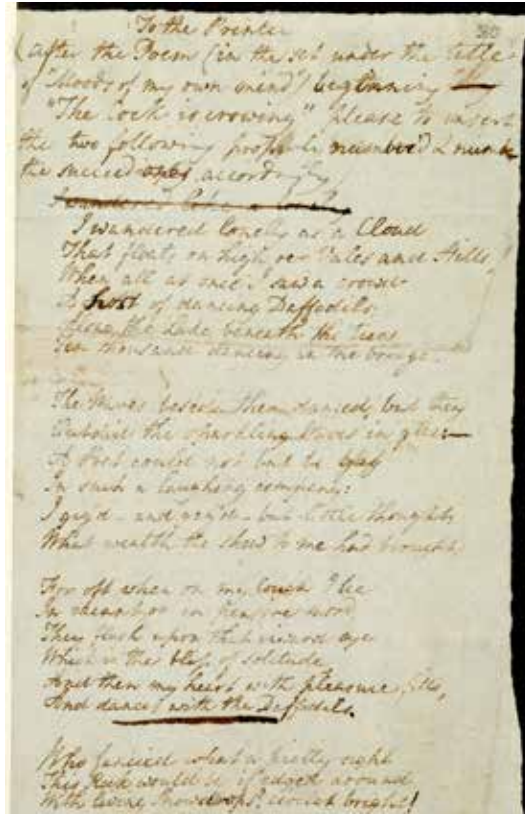 To the Printer
(after the Poem (in the set under the title
of "Moods of my own mind") beginning
"The Cock is crowing" please to insert
the two following properly number'd & number
the succeeding ones accordingly)
I wandered like a
I wandered lonely as a Cloud
That floats on high oer Vales and Hills,
When all at once I saw a crowd
A host of dancing Daffodils;
Along the Lake, beneath the trees
Ten thousand dancing in the breeze.
The Waves beside them danced, but they
Outdid the sparkling Waves in glee:—
A Poet could not but be gay
In such a laughing company:
I gaz'd - and gaz'd - but little thought
What wealth the shew to me had brought:
For oft when on my Couch I lie
In vacant or in pensive mood
They flash upon that inward eye
Which is the bliss of solitude,
And then my heart with pleasure fills,
And dances with the Daffodils.
Who fancied what a pretty sight
This Rock would be if edged around
With living Snowdrops? circlet bright!